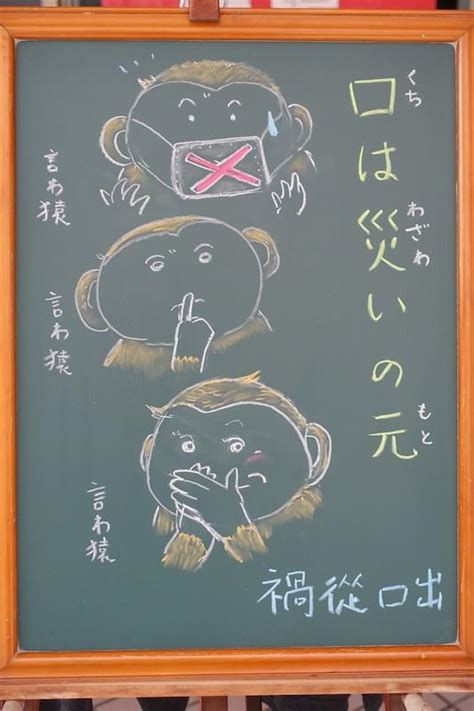 口は災いの元
くち
わざわ
もと
言わ猿
言わ猿
言わ猿
禍從口出